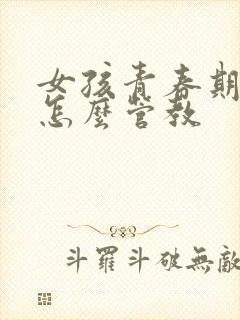 女孩青春期
怎麼管教
斗羅斗破無敵